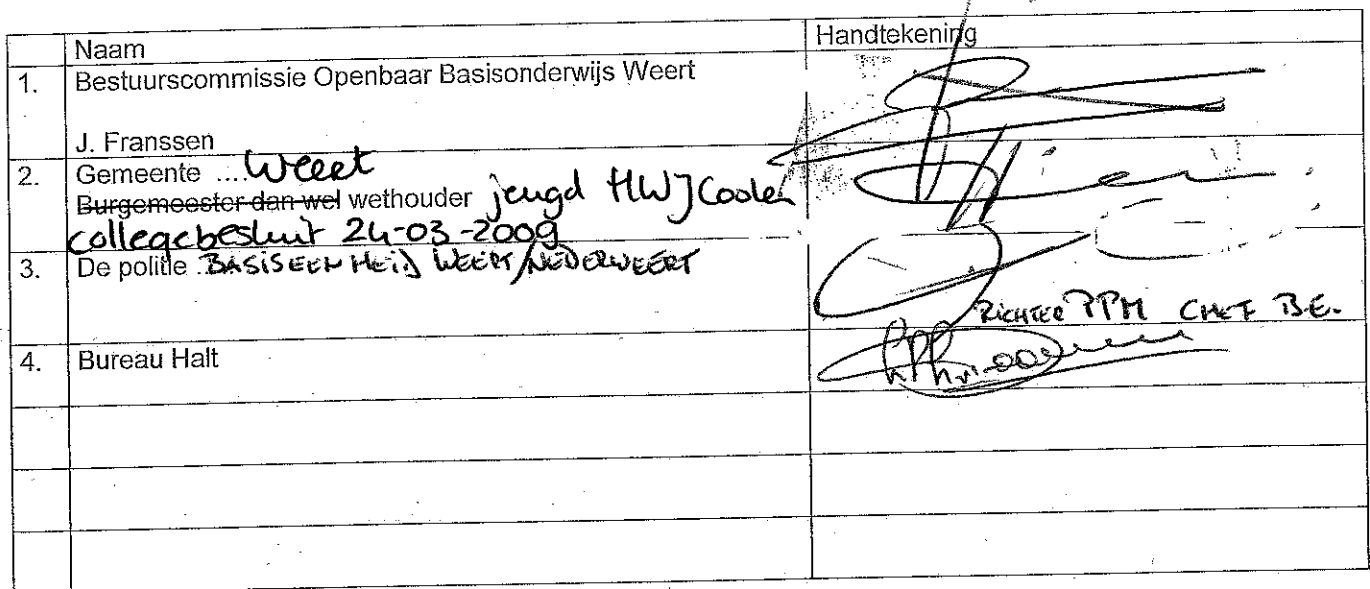 Naam Handtekening
1. Bestuurscommissie Openbaar Basisonderwijs Weert
J. Franssen
2. Gemeente .... Weert
Burgemeester dan wel wethouder jeugd HWJ Coolen
collegebesluit 24-03-2009
3. De politie BASISEENHEID WEERT/NEDERWEERT
RICHTER PPM CHEF B.E.
4. Bureau Halt